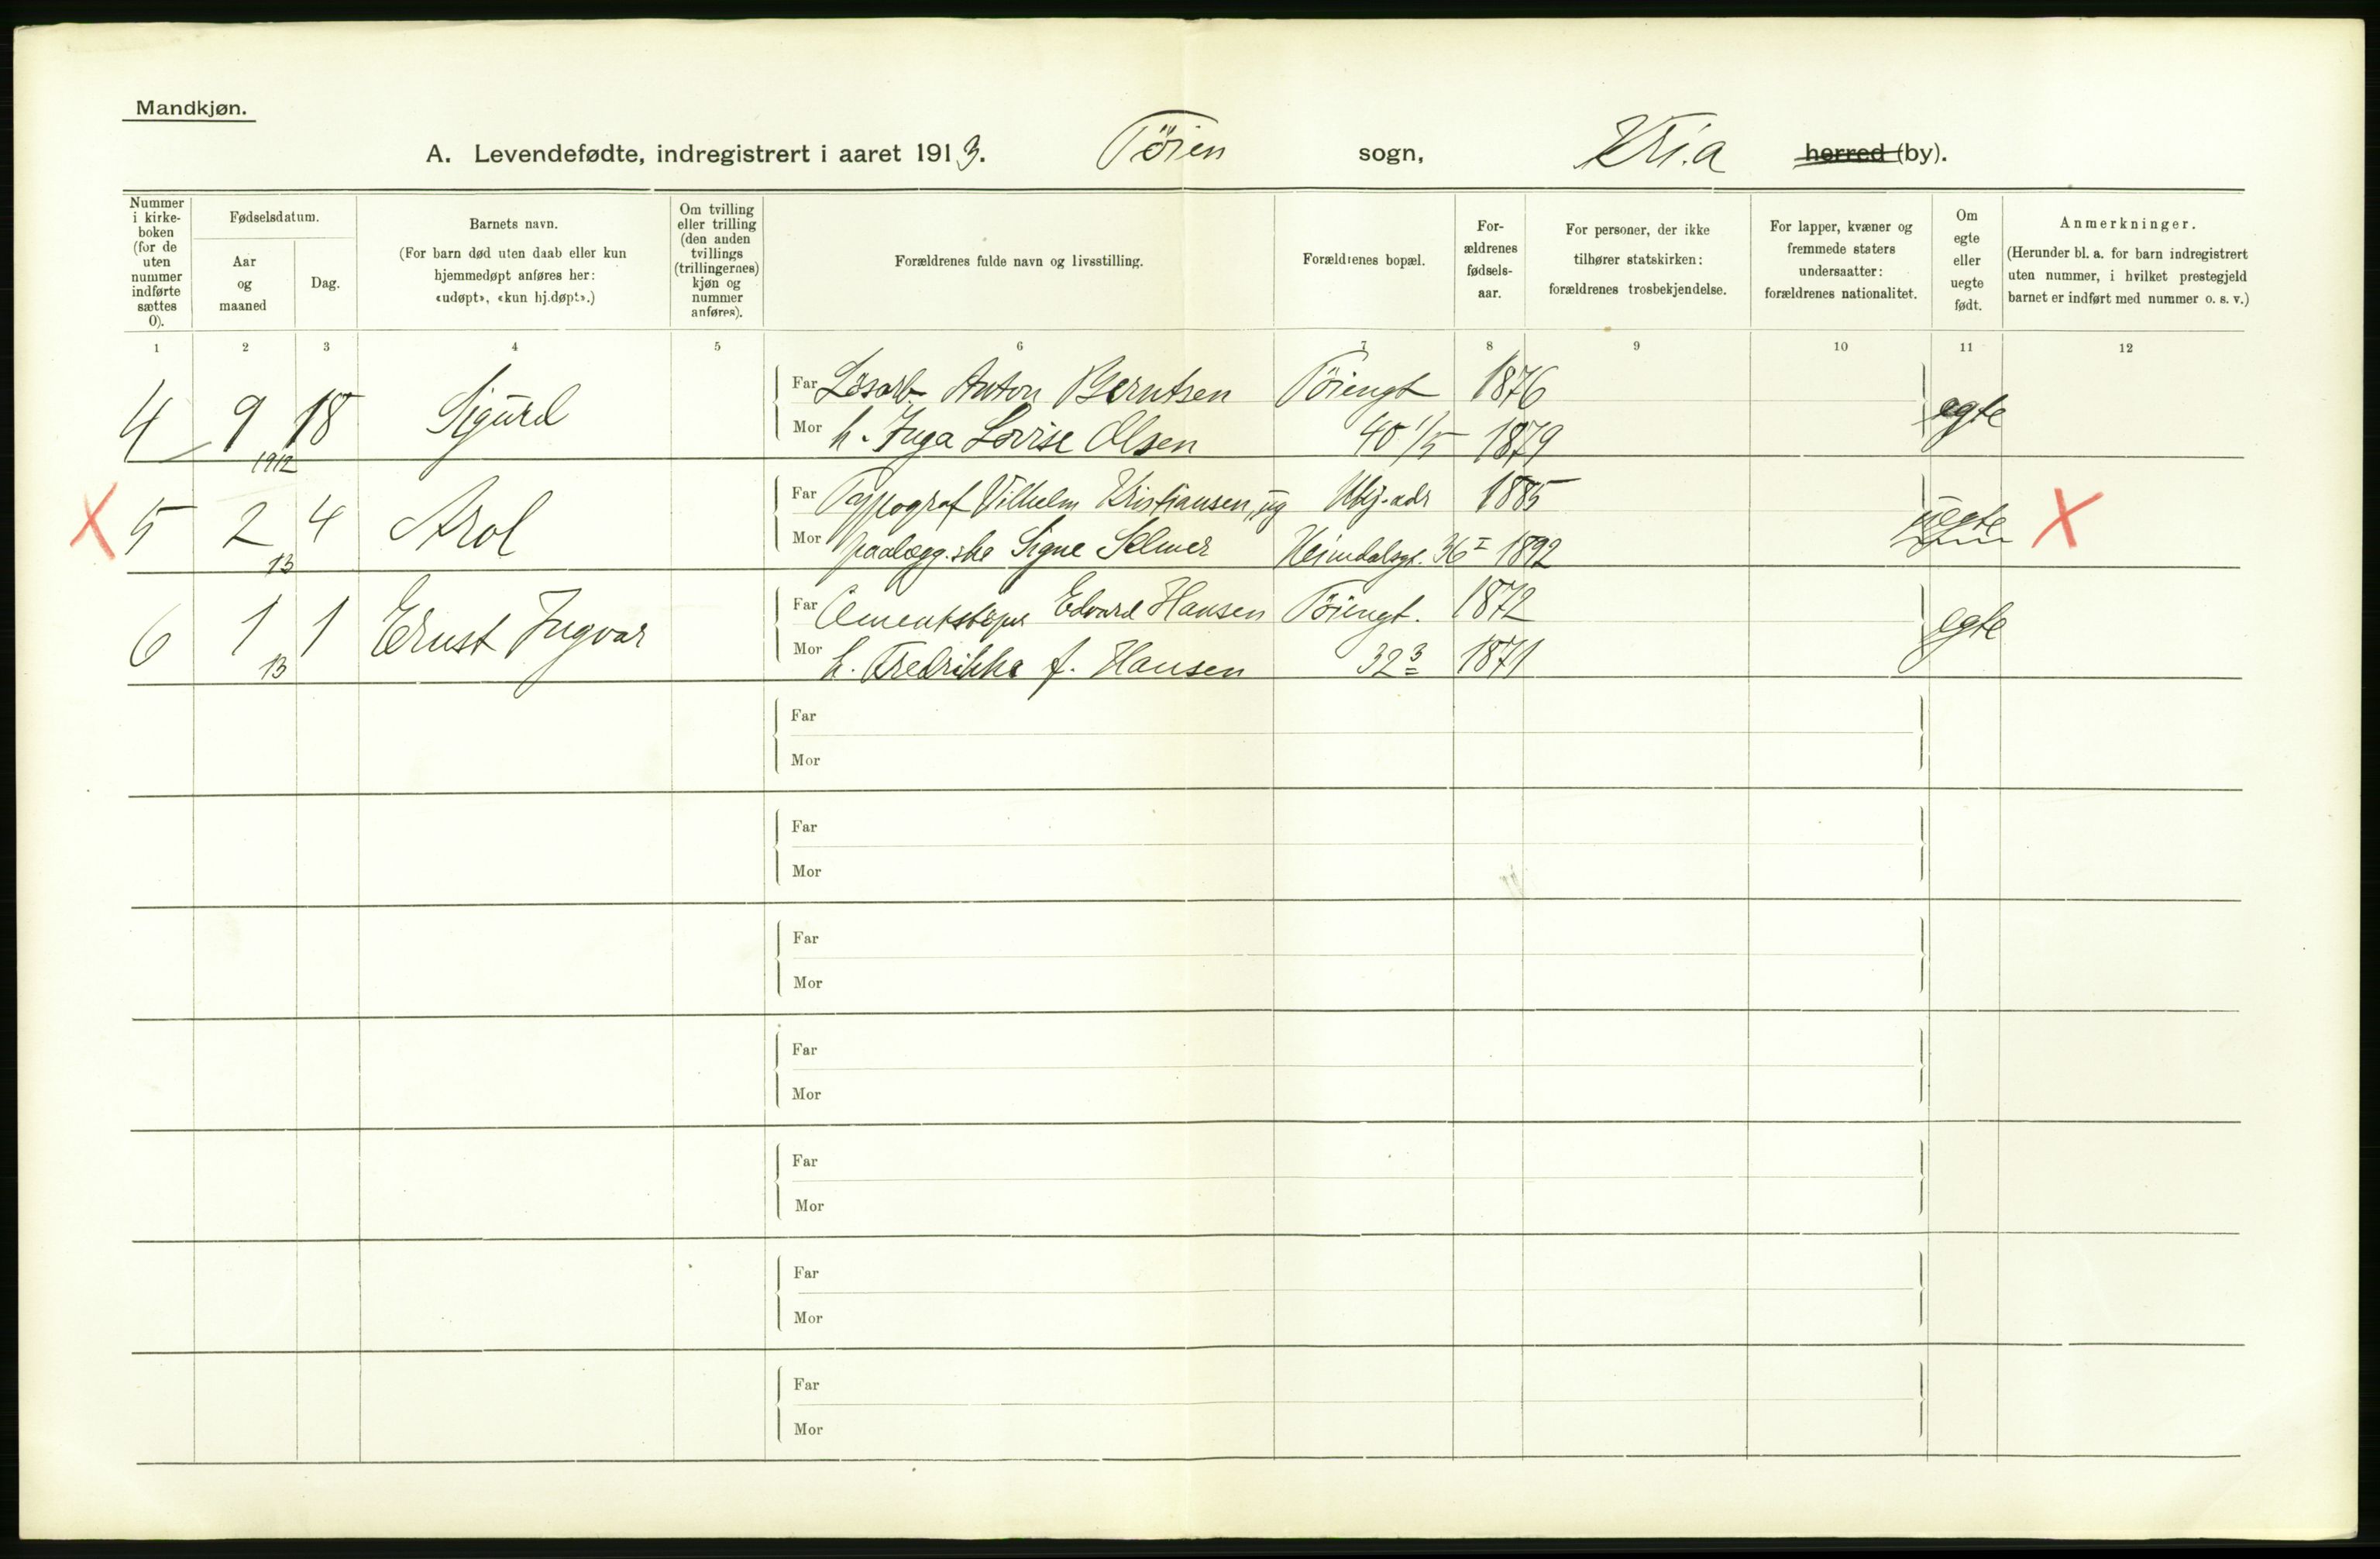 Mandkjøn.
A. Levendefødte, indregistrert i aaret 1913. Töien sogn, Kria herred (by).
Nummer i kirke-boken (for de uten nummer indførte sættes 0).
Fødselsdatum.
Aar og maaned
Dag.
Barnets navn.
(For barn død uten daab eller kun hjemmedøpt anføres her: «udøpt», «kun hj.døpt».)
Om tvilling eller trilling (den anden tvillings (trillingernes) kjøn og nummer anføres).
Forældrenes fulde navn og livsstilling.
Forældrenes bopæl.
For-ældrenes fødsels-aar.
For personer, der ikke tilhører statskirken: forældrenes trosbekjendelse.
For lapper, kvæner og fremmede staters undersaatter: forældrenes nationalitet.
Om egte eller uegte født.
Anmerkninger.
(Herunder bl. a. for barn indregistrert uten nummer, i hvilket prestegjeld barnet er indført med nummer o. s. v.)
1 2 3 4 5 6 7 8 9 10 11 12
4 9 1912 18 Sigurd Far Løsarb. Anton Berntsen Töiengt 1876 egte
Mor h. Inga Lovise Olsen 40 1/5 1879
X 5 2 13 4 Arol Far Typograf Vilhelm Kristiansen, ug Ubj. adr 1885 uegte X
Mor paalægg.ske Signe Selmer Heimdalsgt. 36 I 1892
6 1 13 1 Ernst Ingvar Far Cementstøper Edvard Hansen Töiengt. 1872 egte
Mor h. Fredrikke f. Hansen 32 3 1871
Far
Mor
Far
Mor
Far
Mor
Far
Mor
Far
Mor
Far
Mor
Far
Mor